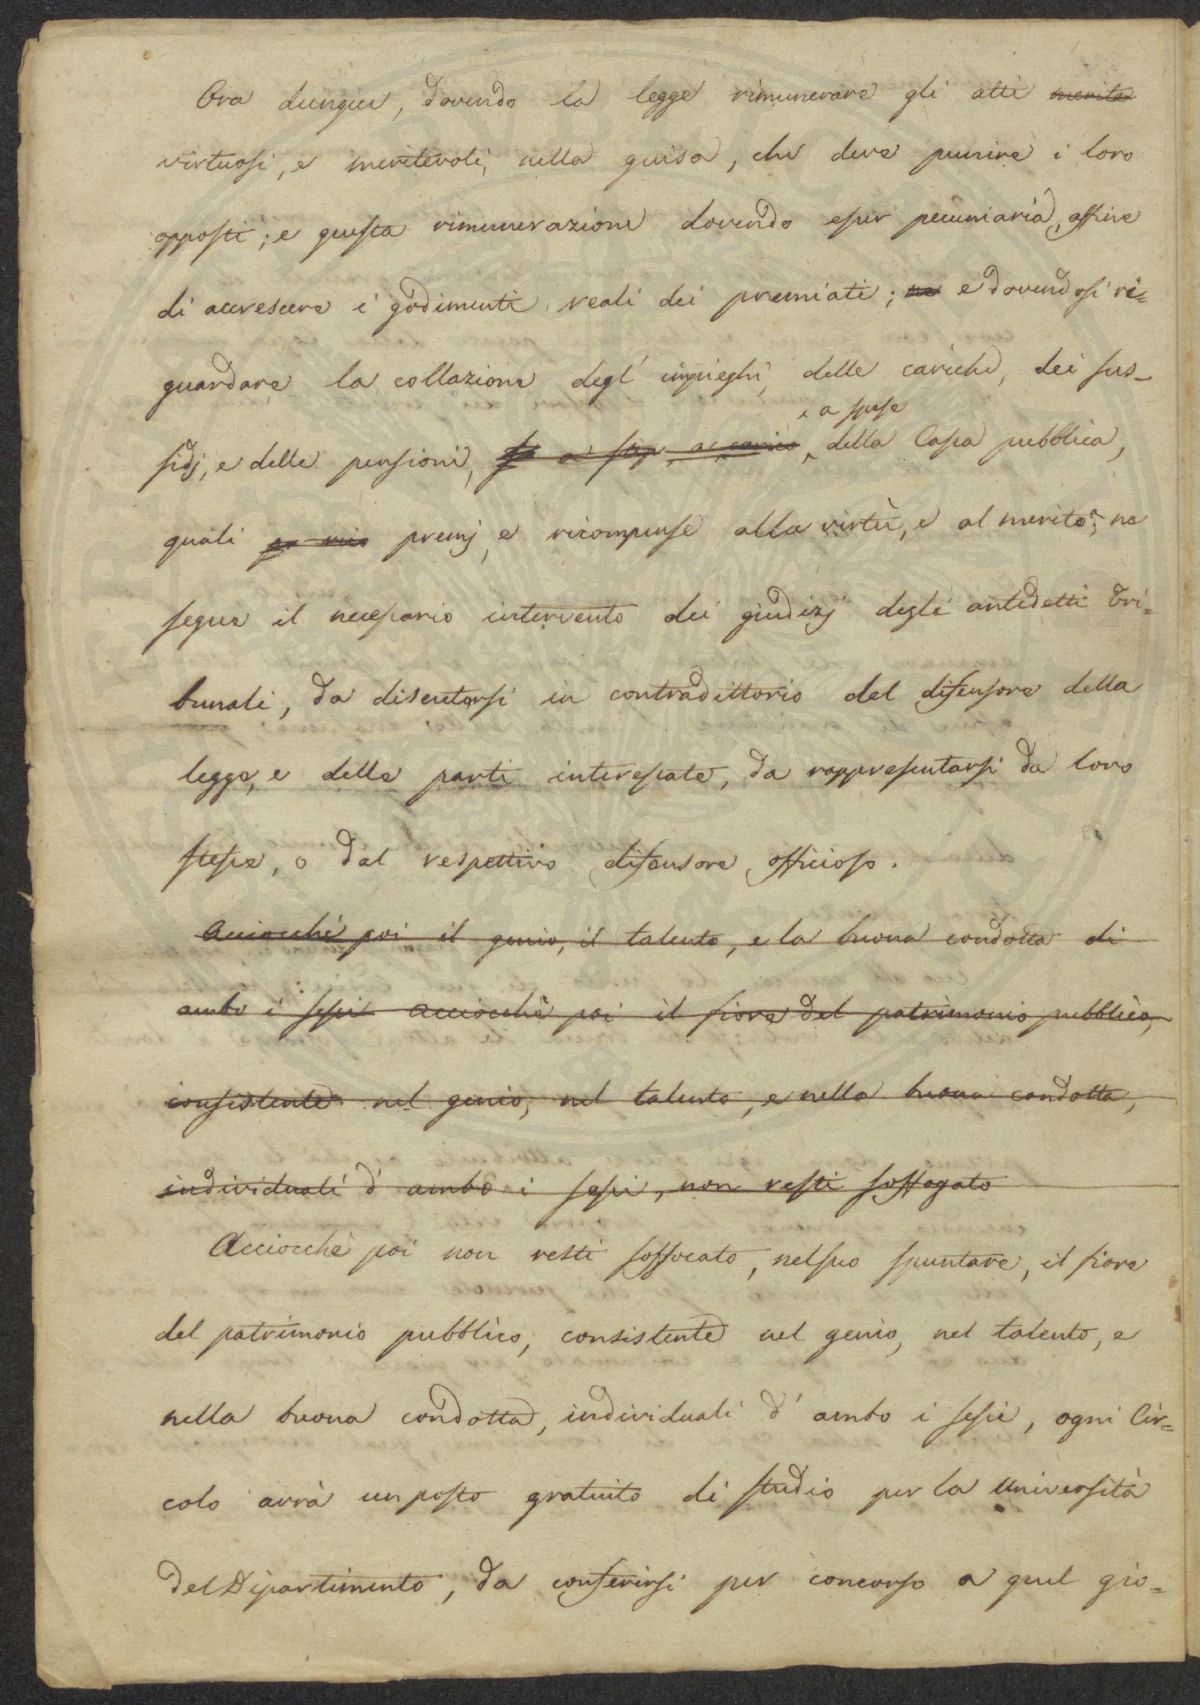 Ora dunque, dovendo la legge rimunerare gli atti merita
virtuosi, e meritevoli, nella guisa, che deve punire i loro
opposti; e questa rimunerazione dovendo esser pecuniaria, affine
di accrescere i godimenti reali dei premiati; ne e dovendosi ri=
guardare la collazione degl' impieghi, delle cariche, dei sus=
a spese
sidj, e delle pensioni, a a carico della Cassa pubblica,
quali premj, e ricompense alla virtù, e al merito; ne
segue il necessario intervento dei giudizj degli antidetti Tri=
bunali, da discutersi in contradittorio del difensore della
legge, e delle parti interessate, da rappresentarsi da loro
stesse, o dal respettivo difensore officioso.
Acciocchè poi il genio, il talento, e la buona condotta di
ambo i sessi Acciocchè poi il fiore del patrimonio pubblico,
consistente nel genio, nel talento, e nella buona condotta,
individuali d' ambo i sessi, non resti soffogato
Acciocchè poi non resti soffocato, nel suo spuntare, il fiore
del patrimonio pubblico, consistente nel genio, nel talento, e
nella buona condotta, individuali d' ambo i sessi, ogni Cir=
colo avrà un posto gratuito di studio per la Università
del Dipartimento, da conferirsi per concorso a quel gio=